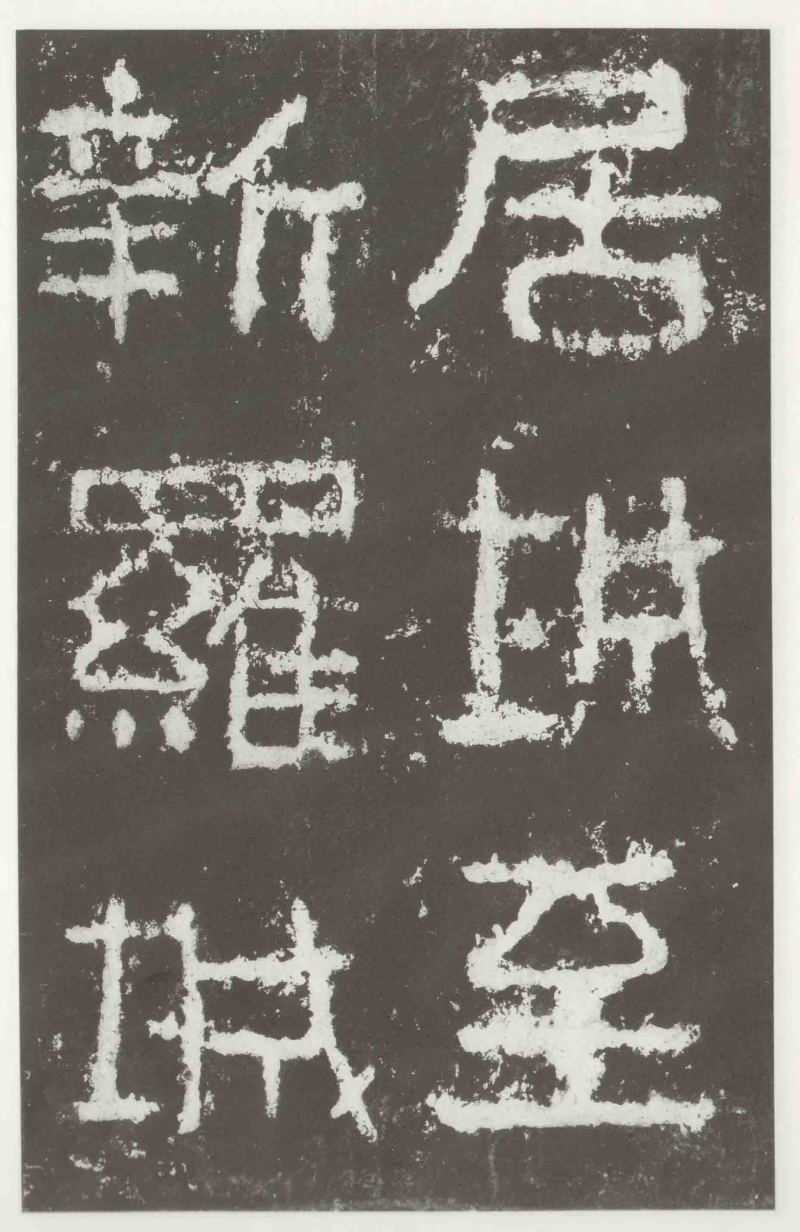 居城至
新羅城